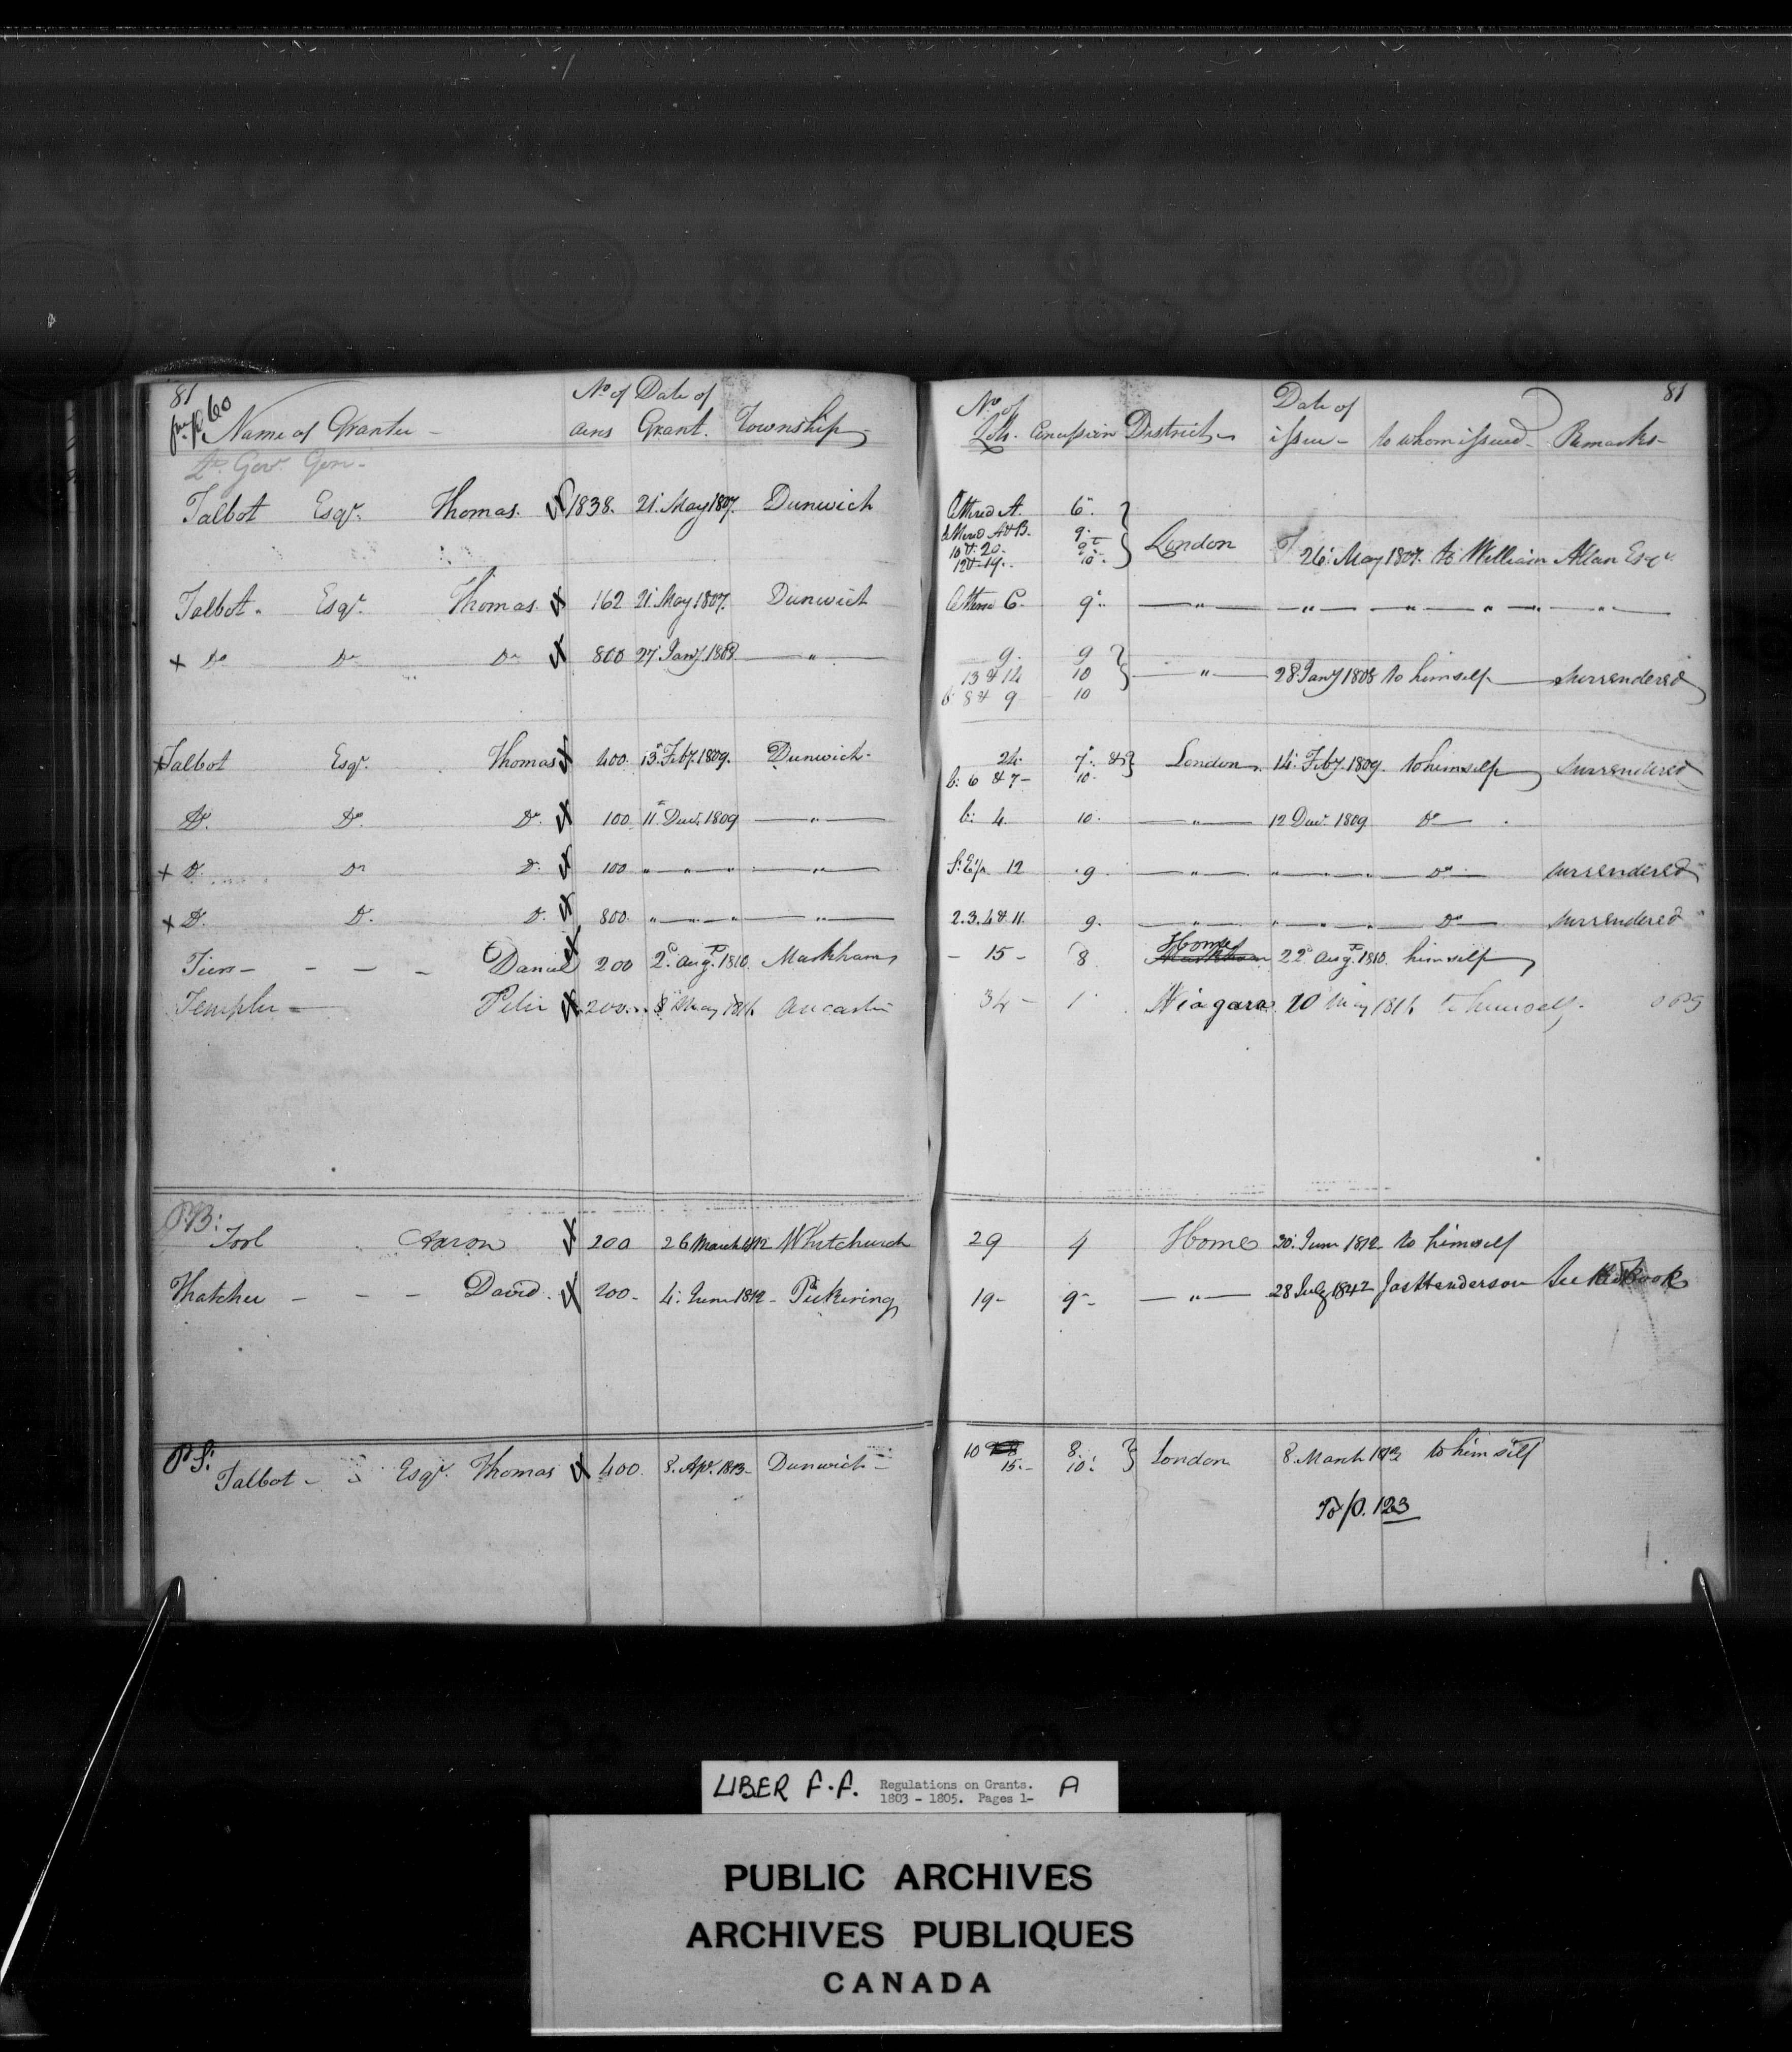 81
fm p. 60
Name of Grantee - No. of acres Date of Grant. Township
Lt. Gov. Gen -
Talbot Esqr. Thomas. 1838. 21 May 1807. Dunwich
Talbot. Esqr. Thomas. 162 21 May 1807. Dunwich
x Do Do Do 800 27 Jany. 1808 — " —
x Talbot Esqr. Thomas 400 13 Feby. 1809. Dunwich -
Do. Do. Do. 100 11 Decr. 1809 — " —
x Do. Do Do. 100 " — " — " — " —
x Do. Do. Do. 800. " — " — " — " —
Daniel 200 2d. Augt. 1810. Markham
Templer — Peter 200 8 May 1816 Ancaster
P.B:
Aaron 200 26 March 1812 Whitchurch
Thatcher - - - David. 200 - 4. June 1812 - Pickering
P S:
Talbot - Esqr. Thomas 400. 8. Apr. 1813 - Dunwich -
81
No. of Lots. Concession District - Date of issue - to whom issued - Remarks -
A. 6.
A & B. 9.
10 & 20. 9
12 & 19. 10. } London 26 May 1807. to William Allan Esqr.
C. 9. — " — — " — — " — " — " —
9. 9
13 & 14 10 } — " — 28 Jany 1808 to himself — surrendered
b: 8 & 9 10
24. 7. & } London. 14. Feby. 1809. to himself surrendered
b: 6 & 7 - 10.
b: 4. 10. — " — 12 Decr. 1809. Do — .
12 9. — " — " — " — " — Do — surrendered
2. 3. 4 & 11. 9. — " — " — " — " — Do — surrendered
- 15 - 8. Home Markham 22d. Augt. 1810. himself
34 - 1. Niagara 10 May 1816 to himself.
29 4 Home 30. June 1812 to himself
19 - 9 - — " — 28 July 1842 Jas Henderson See
10 8.
15. - 10. } London 8. March to himself
To p. 123
LIBER F.F. Regulations on Grants. A
1803 - 1805. Pages 1-
PUBLIC ARCHIVES
ARCHIVES PUBLIQUES
CANADA